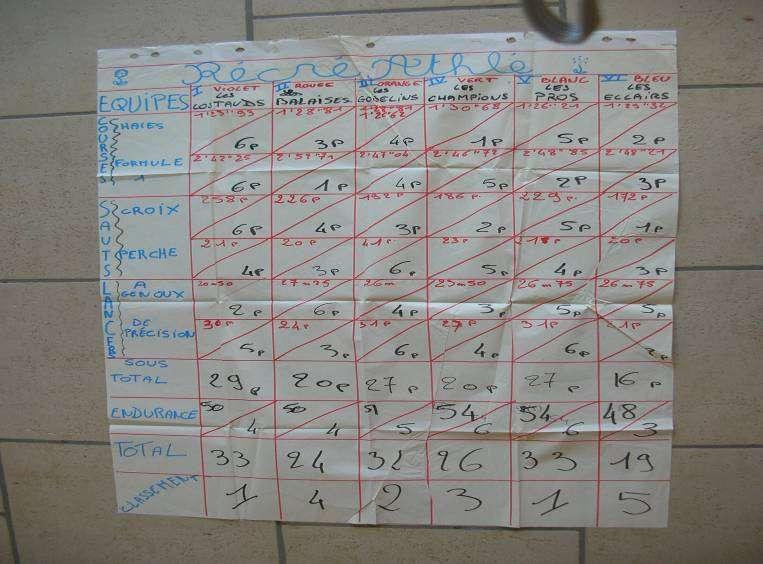 Récré Athlé
EQUIPES I VIOLET LES COSTAUDS II ROUGE LES BALAISES III ORANGE LES GOBELINS IV VERT LES CHAMPIONS V BLANC LES PROS VI BLEU LES ECLAIRS
COURSES HAIES 6P 3P 4P 1P 5P 2P
FORMULE 1 2'42"25 2'52"71 2'47"04 2'46"72 2'48"85 2'48"21
6P 1P 4P 5P 2P 3P
SAUTS CROIX 258P 226P 192P 186P 229P 172P
6P 4P 3P 2P 5P 1P
PERCHE 21P 20P 41P 23P 20P
4P 3P 6P 5P 4P 3P
LANCERS A GENOUX 20m50 27m25 26m 23m50 26m75 26m75
2P 6P 4P 3P 5P 5P
DE PRÉCISION 30P 24P 31P 27P 31P 21P
5P 3P 6P 4P 6P
SOUS TOTAL 29P 20P 27P 20P 27P 16P
ENDURANCE 50 50 51 54 54 48
4 4 5 6 6 3
TOTAL 33 24 32 26 33 19
CLASSEMENT 1 4 2 3 1 5